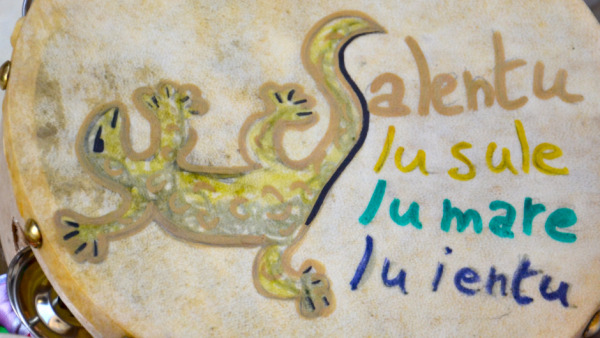 Salentu
lu sule
lu mare
lu ientu